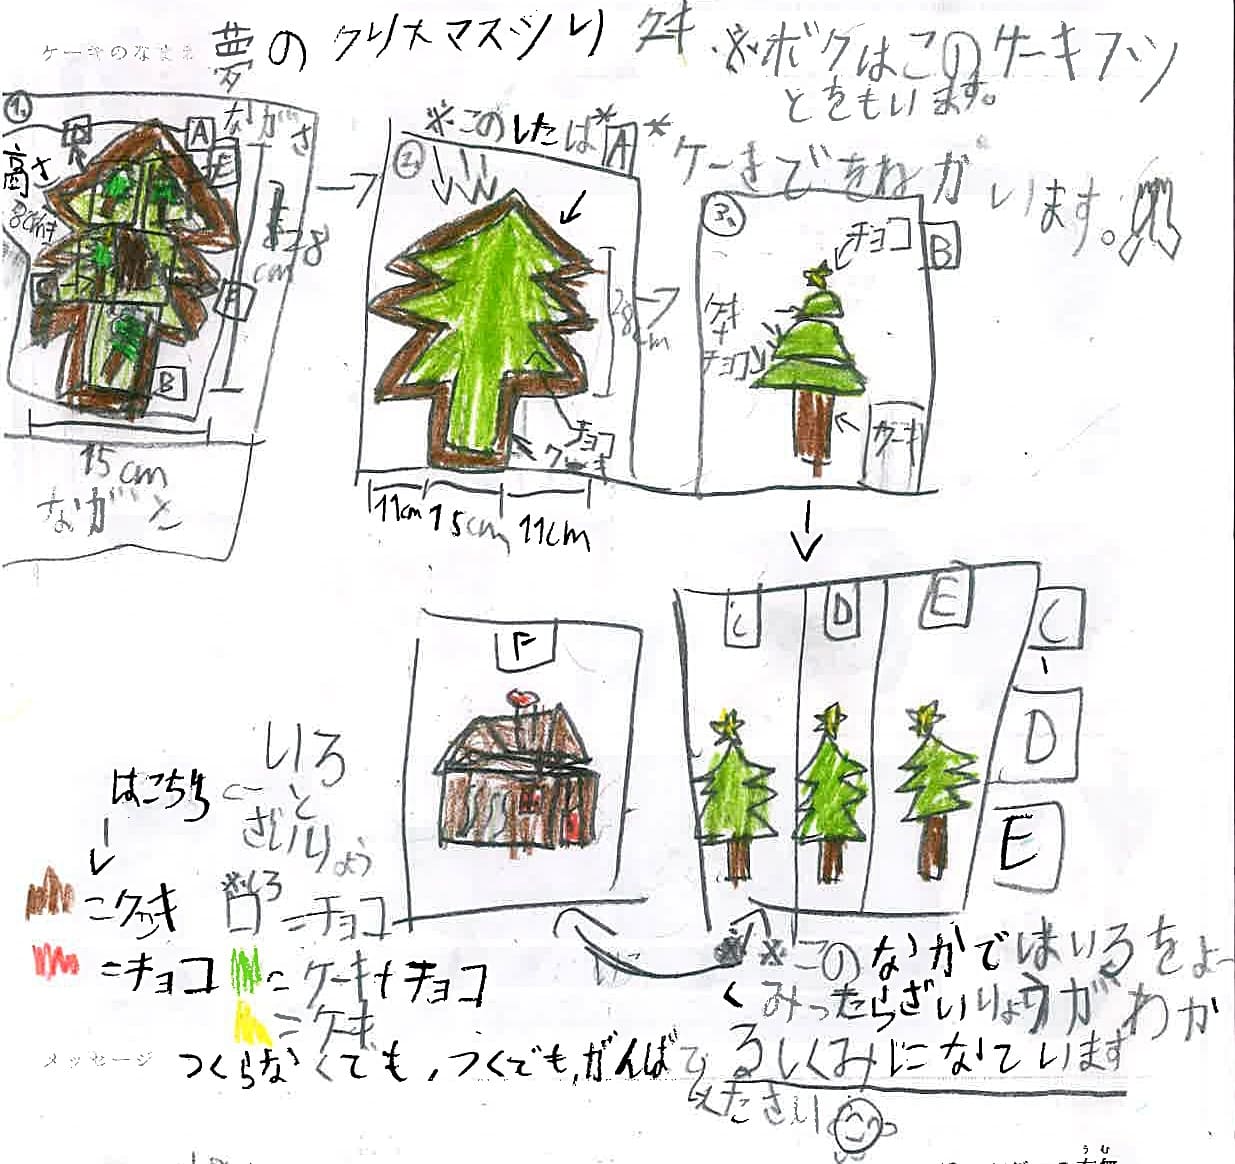 ケーキのなまえ 夢のクリスマスツリ ケキ
※ボクはこのケーキフツ
とをもいます。
1.
A
ながさ
高さ
E
28
cm
C
F
B
15cm
ながさ
※このしたは*A*
ケーキでをねがいます。
2.
28cm
チョコ
11cm 15cm 11cm
3.
チョコ
B
ケキ
+
チョコ
ケーキ
F
C D E
C
D
E
いろ
と
ざいりょう
はこちら
=ケキ
※しろ
=チョコ
=チョコ
=ケーキ+チョコ
=ケキ
※このなかではいるをよー
くみったらざいりょうがわか
るしくみになています
メッセージ つくらなくても,つくでも,がんばて
ください